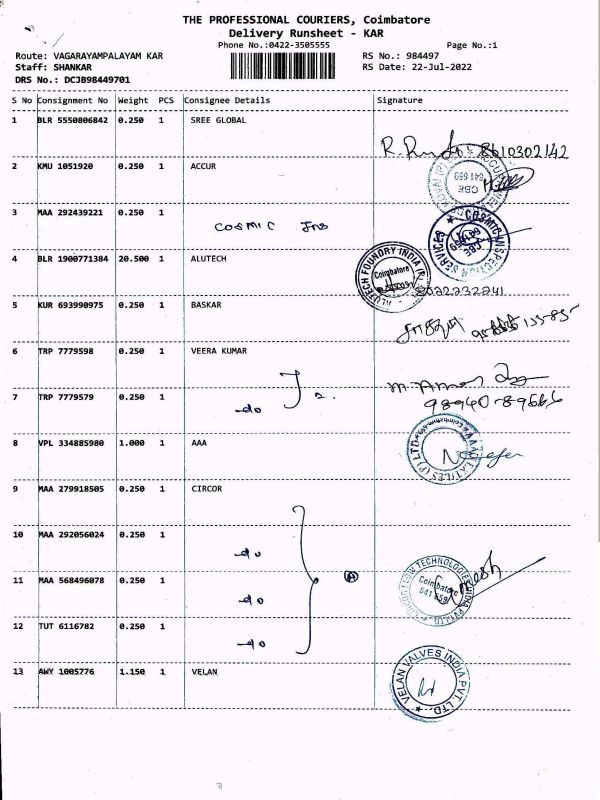 THE PROFESSIONAL COURIERS, Coimbatore
Delivery Runsheet - KAR
Phone No.:0422-3505555
Page No.:1
Route: VAGARAYAMPALAYAM KAR
RS No.: 984497
Staff: SHANKAR
RS Date: 22-Jul-2022
DRS No.: DCJB98449701
S No Consignment No Weight PCS Consignee Details Signature
1 BLR 5550806842 0.250 1 SREE GLOBAL
8610302142
2 KMU 1051920 0.250 1 ACCUR
CBE
641 659
3 MAA 292439221 0.250 1
COSMIC Ins
COSMIC INSPECTION SERVICES
CBE
641 659
4 BLR 1900771384 20.500 1 ALUTECH
ALUTECH FOUNDRY INDIA
Coimbatore
5 KUR 693990975 0.250 1 BASKAR
6 TRP 7779598 0.250 1 VEERA KUMAR
7 TRP 7779579 0.250 1
-do 2.
98940-89666
8 VPL 334885980 1.000 1 AAA
9 MAA 279918505 0.250 1 CIRCOR
10 MAA 292056024 0.250 1
-do
11 MAA 568496078 0.250 1
-do
CIRCOR FLOW TECHNOLOGIES INDIA PVT.LTD
Coimbatore
641 659
12 TUT 6116782 0.250 1
-do
13 AWY 1005776 1.150 1 VELAN
VELAN VALVES INDIA PVT. LTD.